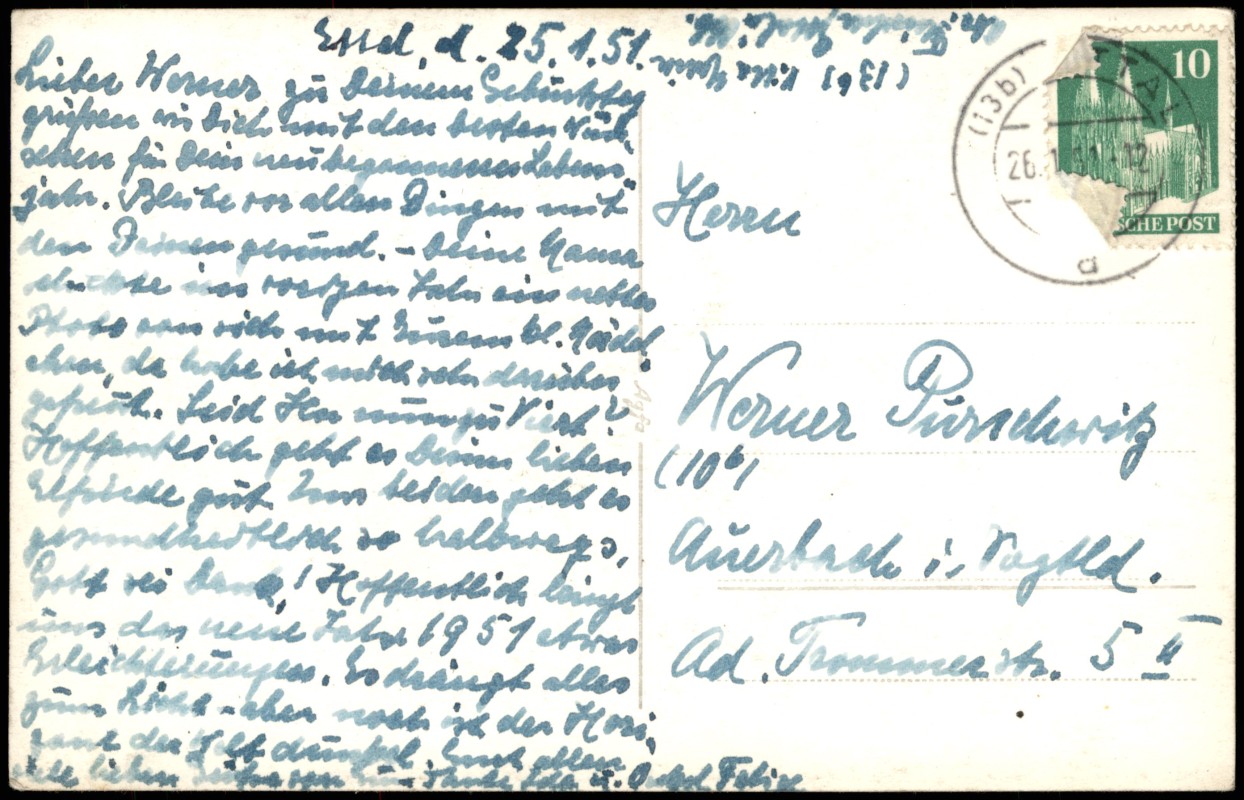 d. 25.1.51.
Lieber Werner zu Deinem Geburtstag
grüßen wir Dich mit den besten Wün-
schen für Dein neubegonnenes Lebens-
jahr. Bleibe vor allen Dingen mit
den Deinen gesund. - Deine Mama
schickte im vorigen Jahr ein nettes
Photo von Dich mit Eurem kl. Mädel
chen, da habe ich mich sehr darüber
gefreut. Seid Ihr nun zu Viert?
Hoffentlich geht es Deiner lieben
Elfriede gut. Uns beiden geht es
gesundheitlich so halbwegs,
Gott sei Dank! Hoffentlich bringt
uns das neue Jahr 1951 etwas
Erleichterungen. Es drängt alles
zum Licht - aber noch ist der Hori-
zont der Welt dunkel. Euch allen
lieben Grüße von Tante u. Onkel Felix
(13b)
Herrn
Werner Purschwitz
(10b)
Auerbach i. Vogtld.
Ad. Trommerstr. 5 II
Agfa
10
SCHE POST
(13b)
TAL
26.1.51.-12
a